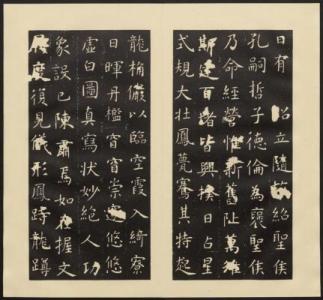 日有詔立隨故紹聖侯
孔嗣哲子德倫為襃聖侯
乃命經營惟新舊阯萬雉
斯建百堵皆興揆日占星
式規大壯鳳甍騫其特起
龍桷儼以臨空霞入綺寮
日暉丹檻窅窅崇邃悠悠
虛白圖真寫狀妙絕人功
象設已陳肅焉如在握文
履度復見儀形鳳跱龍蹲